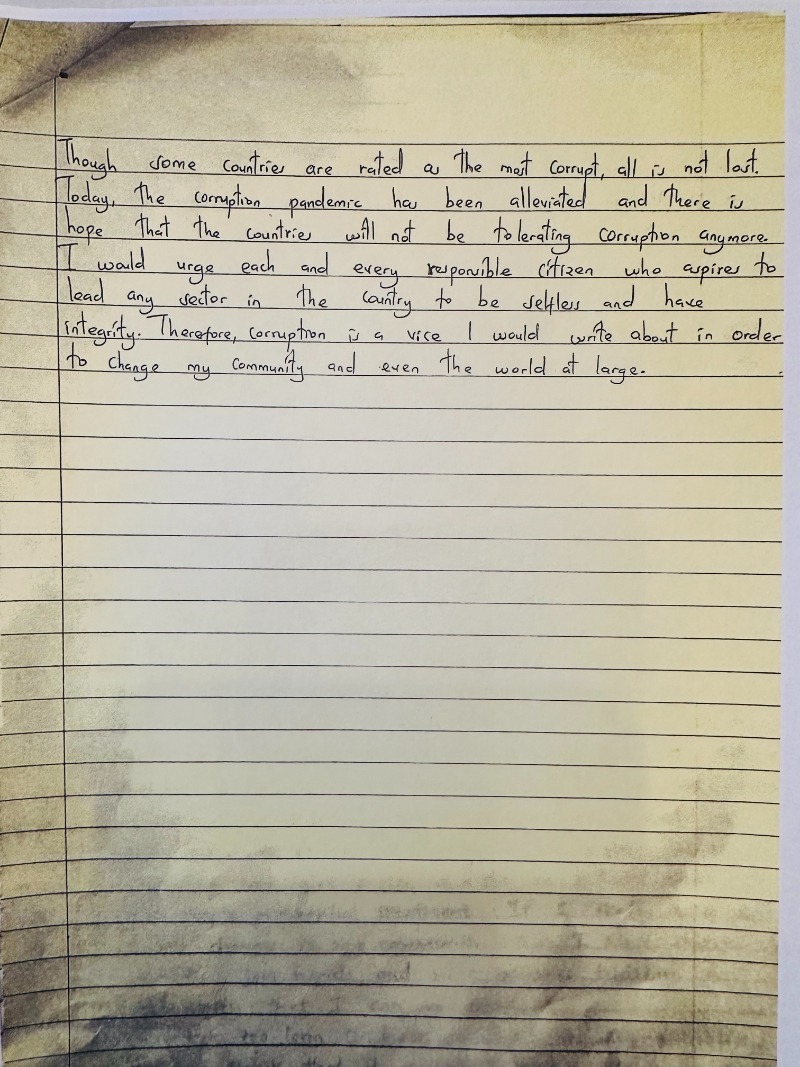 Though some countries are rated as the most corrupt, all is not lost.
Today, the corruption pandemic has been alleviated and there is
hope that the countries will not be tolerating corruption anymore.
I would urge each and every responsible citizen who aspires to
lead any sector in the country to be selfless and have
integrity. Therefore, corruption is a vice I would write about in order
to change my community and even the world at large.